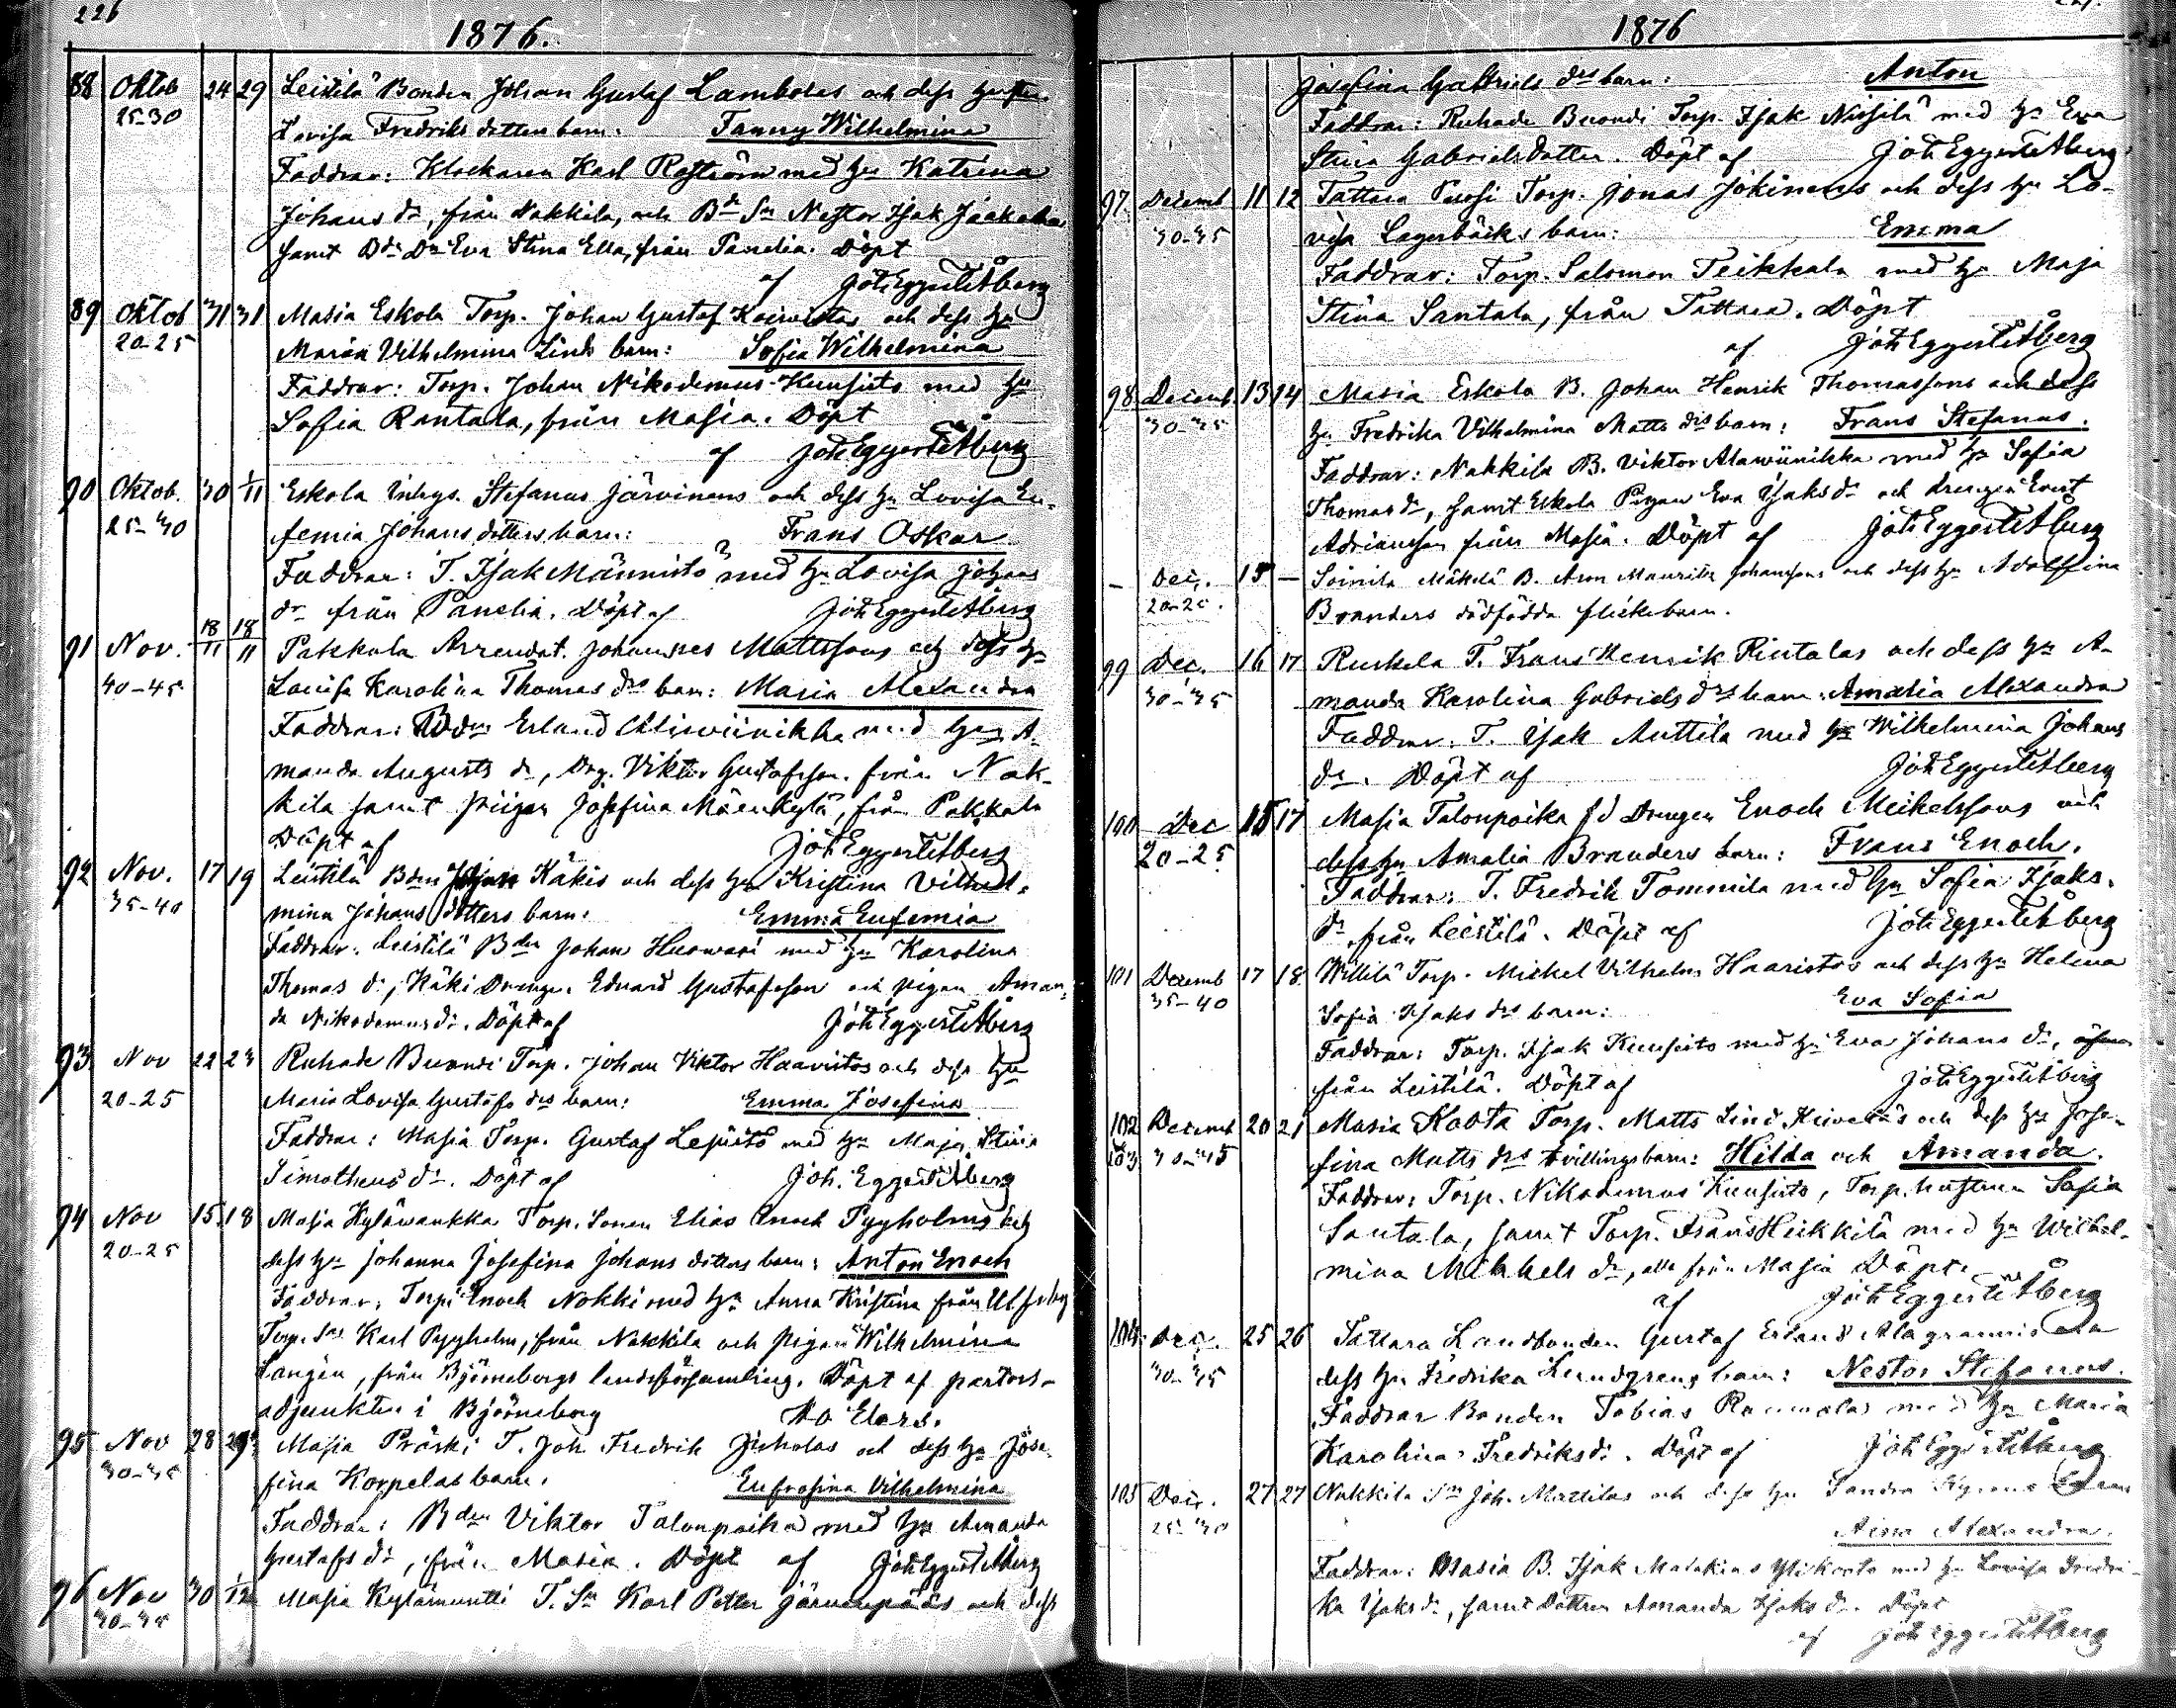 226
1876.
88 Oktob 24 29 Leistilä Bonden Johan Gustaf Lambolas och dess hustru
25-30 Lovisa Fredriks dotters barn: Fanny Wilhelmina
Faddrar: Klockaren Karl med hu Katrina
Johans dr, från Nakkila, och Bde Sn Nestor Isak
samt Bde Dn Eva Stina Ella, från Panelia. Döpt
af Joh Eggert Åberg
89 Oktob 31 31 Masia Eskola Torp. Johan Gustaf Koivistos och dess hu
20-25 Maria Vilhelmina Linds barn: Sofia Wilhelmina
Faddrar: Torp. Johan Nikodemus Kuusisto med hu
Sofia Rantala, från Masia. Döpt
af Joh Eggert Åberg
90 Oktob. 30 1/11 Eskola Inhys. Stefanus Järvinens och dess hu Lovisa Eu-
25-30 femia Johans dotters barn: Frans Oskar
Faddrar: T. Isak Männistö med hu Lovisa Johans
dr från Panelia. Döpt af Joh Eggert Åberg
91 Nov. 18/11 18/11 Pakkala Arrendat. Johannes Mattssons och dess hu
40-45 Lovisa Karolina Thomas drs barn: Maria Alexandra
Faddrar: Bden Erland Aliwiinikka med hu A-
manda Augusts dr, Drg. Viktor Gustafsson från Nak-
kila samt pigan Josefina Mäenkylä, från Pakkala
Döpt af Joh Eggert Åberg
92 Nov. 17 19 Leistilä Bden Johan Käkis och dess hu Kristina Vilhel-
35-40 mina Johans dotters barn: Emma Eufemia
Faddrar: Leistilä Bden Johan Huowari med hu Karolina
Thomas dr, Käki Drengen Eduard Gustafsson och pigan Aman-
da Nikodemus dr. Döpt af Joh Eggert Åberg
93 Nov 22 23 Ruhade Buondi Torp. Johan Viktor Haavistos och dess hu
20-25 Maria Lovisa Gustafs drs barn: Emma Josefina
Faddrar: Masia Torp. Gustaf Lepistö med hu Maja Stina
Timotheus dr. Döpt af Joh. Eggert Åberg
94 Nov 15 18 Masia Kyläwankka Torp. Sonen Elias Enoch Pyyholms och
20-25 dess hu Johanna Josefina Johans dotters barn: Anton Enoch
Faddrar: Torp. Enoch Nokki med hu Anna Kristina från Ulfsby
Torp. Sn Karl Pyyholm, från Nakkila och pigan Wilhelmina
Langén, från Björneborgs landsförsamling. Döpt af pastors-
adjunkten i Björneborg
95 Nov 28 29 Masia Präski T. Joh Fredrik och dess hu Jose-
30-35 fina Korpelas barn. Eufrosina Vilhelmina
Faddrar: Bden Viktor Talonpoika med hu Amanda
Gustafs dr, från Masia. Döpt af Joh Eggert Åberg
96 Nov 30 1/12 Masia Kylämuntti T. Sn Karl Petter Järvenpääs och dess
30-35
1876
Josefina Gabriels drs barn: Anton
Faddrar: Ruhade Buondi Torp. Isak Nissilä med hu Eva
Stina Gabrielsdotter. Döpt af Joh Eggert Åberg
97. Decemb 11 12 Tattara Torp. Jonas Jokinens och dess hu Lo-
30-35 visa Lagerbäcks barn: Emma
Faddrar: Torp. Salomon Teikkala med hu Maja
Stina Santala, från Tattara. Döpt
af Joh Eggert Åberg
98 Decemb 13 14 Masia Eskola B. Johan Henrik Thomassons och dess
30-35 hu Fredrika Vilhelmina Matts drs barn: Frans Stefanus.
Faddrar: Nakkila B. Viktor Alawiinikka med hu Sofia
Thomas dr, samt Eskola Pigan Eva Isaks dr och drengen Evert
Adriansson från Masia. Döpt af Joh Eggert Åberg
– Dec. 15 – Soinila Mäkelä B. Aron Mauritz Johanssons och dess hu Adolfina
20-25. Branders dödfödda flickebarn.
99 Dec. 16 17 Ruskela T. Frans Henrik Rintalas och dess hu A-
30-35 manda Karolina Gabriels drs barn. Amalia Alexandra
Faddrar: T. Isak Anttila med hu Wilhelmina Johans
dr. Döpt af Joh Eggert Åberg
100 Dec 15 17 Masia Talonpoika fd Drengen Enoch Michelssons och
20-25 dess hu Amalia Branders barn: Frans Enoch.
Faddrar: T. Fredrik Tommila med hu Sofia Isaks
dr från Leistilä. Döpt af Joh Eggert Åberg
101 Decemb 17 18 Willilä Torp. Michel Vilhelm Haavistos och dess hu Helena
35-40 Sofia Isaks drs barn: Eva Sofia
Faddrar: Torp. Isak Kuusisto med hu Eva Johans dr,
från Leistilä. Döpt af Joh Eggert Åberg
102 Decemb 20 21 Masia Kaota Torp. Matts Lind och dess hu Jose-
103 30-35 fina Matts drs tvillingsbarn: Hilda och Amanda.
Faddrar: Torp. Nikodemus Kuusisto, Torp. hustrun Sofia
Santala, samt Torp. Frans Heikkilä med hu Wilhel-
mina Mikkels dr, alla från Masia Döpt.
af Joh Eggert Åberg
104 Dec. 25 26 Tattara Landbonden Gustaf Erland Alagrannis och
30-35 dess hu Fredrika Lundgrens barn: Nestor Stefanus.
Faddrar Bonden Tobias med hu Maria
Karolina Fredriks dr. Döpt af Joh Eggert Åberg
105 Dec. 27 27 Nakkila Sn Joh. Mattilas och dess hu Sandra
25-30 Aina Alexandra.
Faddrar: Masia B. Isak Malakias Ylikarta med hu Lovisa Fredri-
ka Isaks dr, samt Dottren Amanda Isaks dr. Döpt
af Joh Eggert Åberg